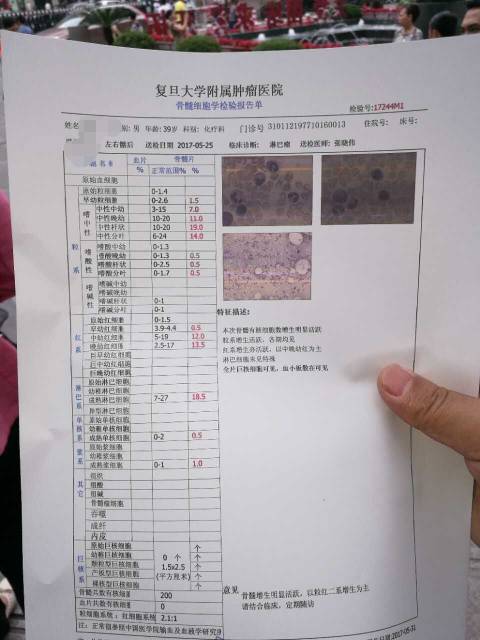 复旦大学附属肿瘤医院
骨髓细胞学检验报告单
检验号:17244M1
姓名 别: 男 年龄: 39岁 科别: 化疗科 门诊号 310112197710160013 住院号: 床号:
左右髂后 送检日期 2017-05-25 临床诊断: 淋巴瘤 送检医师: 张晓伟
胞名称 血片% 骨髓片 正常范围% %
原始血细胞
粒系
原始粒细胞 0-1.4
早幼粒细胞 0-2.6 1.5
嗜中性
中性中幼 3-15 7.0
中性晚幼 10-20 11.0
中性杆状 10-20 19.0
中性分叶 6-24 14.0
嗜酸性
嗜酸中幼 0-1.3
嗜酸晚幼 0-1.3 0.5
嗜酸杆状 0-2.5 0.5
嗜酸分叶 0-1.7 0.5
嗜碱性
嗜碱中幼
嗜碱晚幼
嗜碱杆状 0-1
嗜碱分叶 0-1
红系
原始红细胞 0-1.5
早幼红细胞 3.9-4.4 0.5
中幼红细胞 5-19 12.0
晚幼红细胞 2.5-17 13.5
巨早幼红细胞
巨中幼红细胞
巨晚幼红细胞
淋巴系
原始淋巴细胞
幼稚淋巴细胞
成熟淋巴细胞 7-27 18.5
异型淋巴细胞
单核系
原始单核细胞
幼稚单核细胞
成熟单核细胞 0-2 0.5
浆系
原始浆细胞
幼稚浆细胞
成熟浆细胞 0-1 1.0
其它
组织
组酸
组碱
骨髓瘤细胞
吞噬
成纤
内皮
巨核系
原始巨核细胞 个
幼稚巨核细胞 0 个 个
颗粒型巨核细胞 1.5x2.5 个
产板型巨核细胞 (平方厘米) 个
裸核型巨核细胞 个
骨髓共数有核细胞 200
血片共数有核细胞 0
粒细胞系统 : 红细胞系统 2.1:1
注: 正常值参照中国医学院输血及血液学研究所
特征描述:
本次骨髓有核细胞数增生明显活跃
粒系增生活跃, 各期均见
红系增生亦活跃, 以中晚幼红为主
淋巴细胞未见特殊
全片巨核细胞可见, 血小板散在可见
意见 骨髓增生明显活跃, 以粒红二系增生为主
请结合临床, 定期随访
2017-05-31